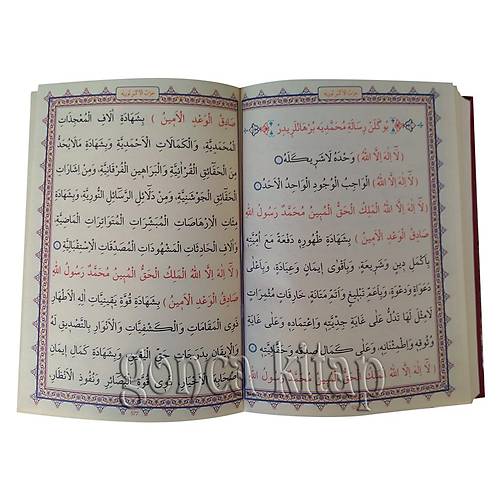 حزب الاكبر نورية
بو گلن رسالۀ محمديه برهانلريدر
﴿ لَا اِلٰهَ اِلَّا اللّٰهُ ﴾ وَحْدَهُ لَا شَرِيكَ لَهُ
﴿ لَا اِلٰهَ اِلَّا اللّٰهُ ﴾ اَلْوَاجِبُ الْوُجُودِ الْوَاحِدُ الْاَحَدُ
﴿ لَا اِلٰهَ اِلَّا اللّٰهُ الْمَلِكُ الْحَقُّ الْمُبِينُ مُحَمَّدٌ رَسُولُ اللّٰهِ
صَادِقُ الْوَعْدِ الْاَمِينُ ﴾ بِشَهَادَةِ ظُهُورِهِ دَفْعَةً مَعَ اُمِّيَّتِهِ
بِاَكْمَلِ دِينٍ وَشَرِيعَةٍ، وَبِاَقْوَى اِيمَانٍ وَعِبَادَةٍ، وَبِاَعْلَى
دَعْوَاةٍ وَدَعْوَةٍ، وَبِاَعَمِّ تَبْلِيغٍ وَاَتَمِّ مَتَانَةٍ، خَارِقَاتٍ مُثْمِرَاتٍ
لَا مِثْلَ لَهَا تَدُلُّ عَلَى غَايَةِ جِدِّيَّتِهِ وَاِعْتِمَادِهِ وَعَلَى غَايَةِ
وُثُوقِهِ وَاِطْمِئْنَانِهِ، وَعَلَى كَمَالِ صِدْقِهِ وَحَقَّانِيَّتِهِ
﴿ لَا اِلٰهَ اِلَّا اللّٰهُ الْمَلِكُ الْحَقُّ الْمُبِينُ مُحَمَّدٌ رَسُولُ اللّٰهِ
حزب الاكبر نورية
صَادِقُ الْوَعْدِ الْاَمِينُ ﴾ بِشَهَادَةِ اٰلَافِ الْمُعْجِزَاتِ
الْمُحَمَّدِيَّةِ، وَالْكَمَالَاتِ الْاَحْمَدِيَّةِ وَبِشَهَادَةِ مَالَايُحَدُّ
مِنَ الْحَقَائِقِ الْقُرْاٰنِيَّةِ وَالْبَرَاهِينِ الْفُرْقَانِيَّةِ، وَمِنْ اِشَارَاتِ
الْحَقَائِقِ الْجَوْشَنِيَّةِ، وَمِنْ دَلَائِلِ الرَّسَائِلِ النُّورِيَّةِ وَبِشَهَادَةِ
مِئَاتِ الْاِرْهَاصَاتِ الْمُبَشِّرَاتِ الْمُتَوَاتِرَاتِ الْمَاضِيَّةِ
وَاٰلَافِ الْحَادِثَاتِ الْمَشْهُودَاتِ الْمُصَدِّقَاتِ الْاِسْتِقْبَالِيَّةِ
﴿ لَا اِلٰهَ اِلَّا اللّٰهُ الْمَلِكُ الْحَقُّ الْمُبِينُ مُحَمَّدٌ رَسُولُ اللّٰهِ
صَادِقُ الْوَعْدِ الْاَمِينُ ﴾ بِشَهَادَةِ قُوَّةِ يَقِينِيَّاتِ اٰلِهِ الْاَطْهَارِ
ذَوِى الْمَقَامَاتِ وَالْكَشْفِيَّاتِ وَالْاَنْوَارِ بِالتَّصْدِيقِ لَهُ
وَالْاِيقَانِ بِدَرَجَاتِ حَقِّ الْيَقِينِ وَبِشَهَادَةِ كَمَالِ اِيمَانِ
الْاَخْيَارِ ذَوِى قُوَّةِ الْبَصَائِرِ وَنُفُوذِ الْاَنْظَارِ
gonca kitap